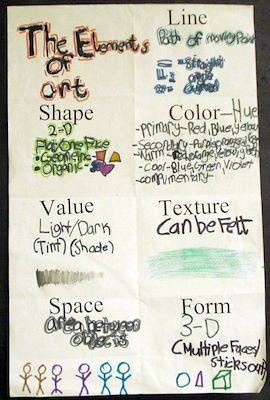 The Elements
of
art
Line
Path of moving Point
Straight
angle
curved
Shape
2-D
Flat One Face
Geometric
Organic
Color—Hue
-Primary-Red, Blue, yellow
-Secondary-
-Warm-
-Cool-Blue, Green, Violet
-complimentary-
Value
Light/Dark
(Tint) (Shade)
Texture
Can be Felt
Space
area between
objects
Form
3-D
(Multiple Faces/
sticks out)